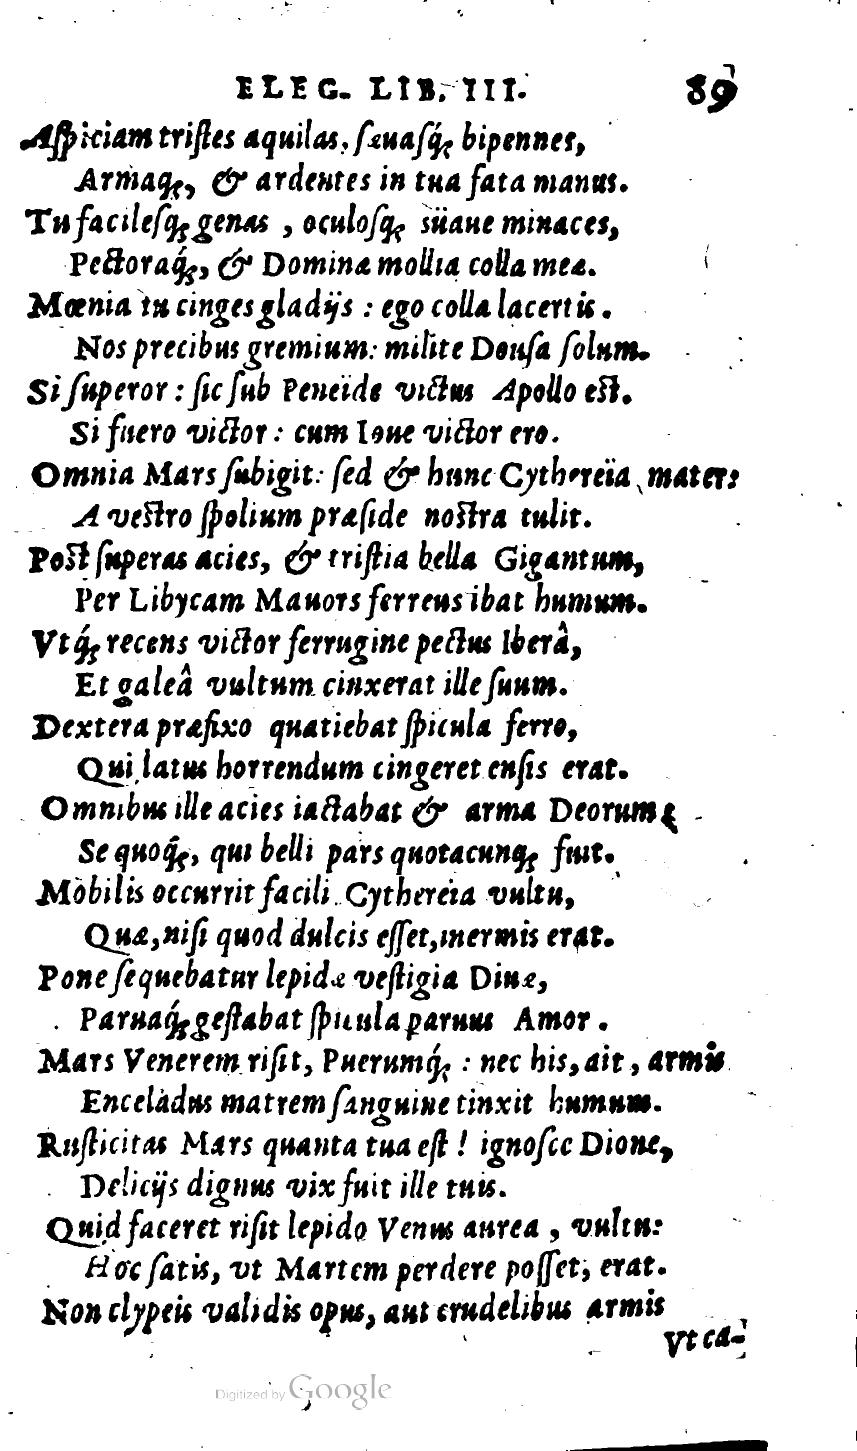 ELEG. LIB. III. 89
Aſpiciam triſtes aquilas, ſæuaſq́; bipennes,
Armaq;, & ardentes in tua fata manus.
Tu facileſq; genas, oculoſq; süaue minaces,
Pectoraq́;, & Dominæ mollia colla meæ.
Mœnia tu cinges gladijs : ego colla lacertis.
Nos precibus gremium: milite Douſa ſolum.
Si ſuperor : ſic ſub Peneïde victus Apollo est.
Si fuero victor : cum Ioue victor ero.
Omnia Mars ſubigit: ſed & hunc Cythereïa mater:
A vestro ſpolium præſide nostra tulit.
Post ſuperas acies, & triſtia bella Gigantum,
Per Libycam Mauors ferreus ibat humum.
Vtq́; recens victor ferrugine pectus Iberâ,
Et galeâ vultum cinxerat ille ſuum.
Dextera præfixo quatiebat ſpicula ferro,
Qui latus horrendum cingeret enſis erat.
Omnibus ille acies iactabat & arma Deorum;
Se quoq́;, qui belli pars quotacunq; fuit.
Mobilis occurrit facili Cythereia vultu,
Quæ, niſi quod dulcis eſſet, inermis erat.
Pone ſequebatur lepidæ veſtigia Diuæ,
Paruaq́; geſtabat ſpicula paruus Amor.
Mars Venerem riſit, Puerumq́; : nec his, ait, armis
Enceladus matrem ſanguine tinxit humum.
Ruſticitas Mars quanta tua eſt ! ignoſce Dione,
Delicijs dignus vix fuit ille tuis.
Quid faceret riſit lepido Venus aurea, vultu:
Hoc ſatis, vt Martem perdere poſſet, erat.
Non clypeis validis opus, aut crudelibus armis
Vt ca-
Digitized by Google